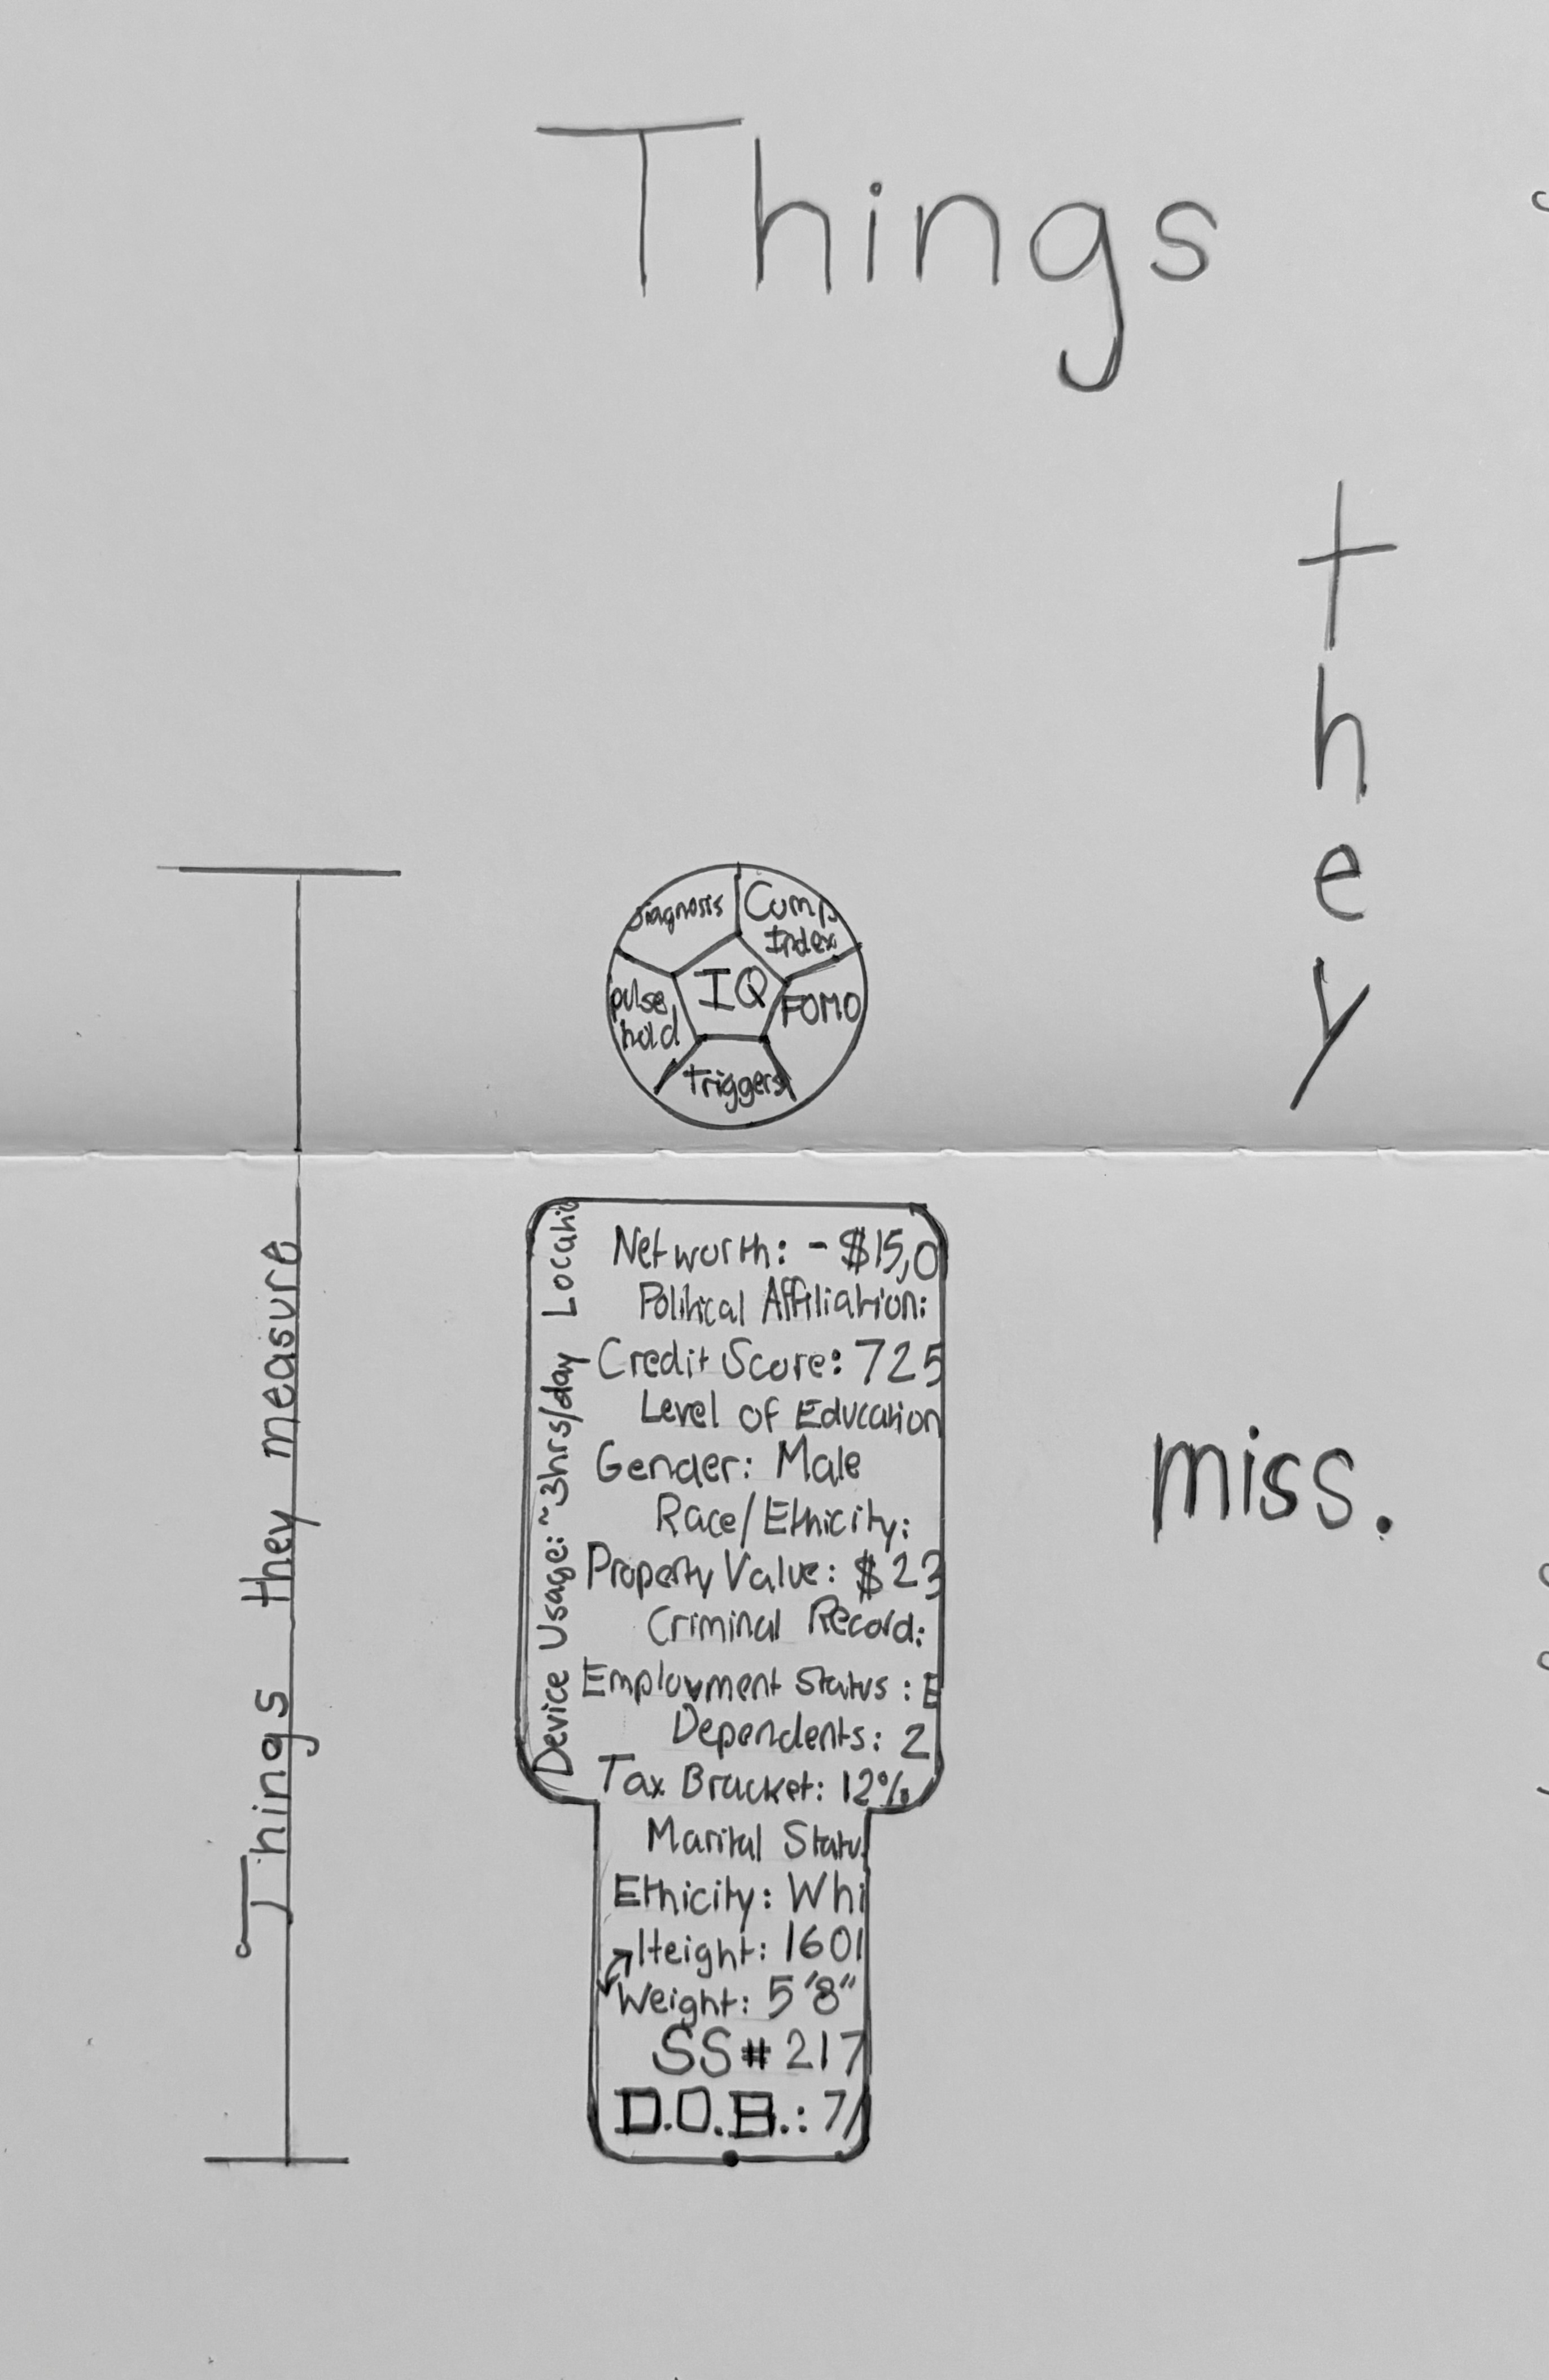 Things
they
miss.
Things they measure
Diagnosis
Comp
Index
pulse
hold
IQ
FOMO
Triggers
Device Usage: ~3hrs/day Locatio
Networth: -$15,0
Political Affiliation:
Credit Score: 725
Level of Education
Gender: Male
Race/Ethicity:
Property Value: $23
Criminal Record:
Employment Status: E
Dependents: 2
Tax Bracket: 12%
Marital Statu
Ethicity: Whi
Height: 1601
Weight: 5'8"
SS# 217
D.O.B.: 7/